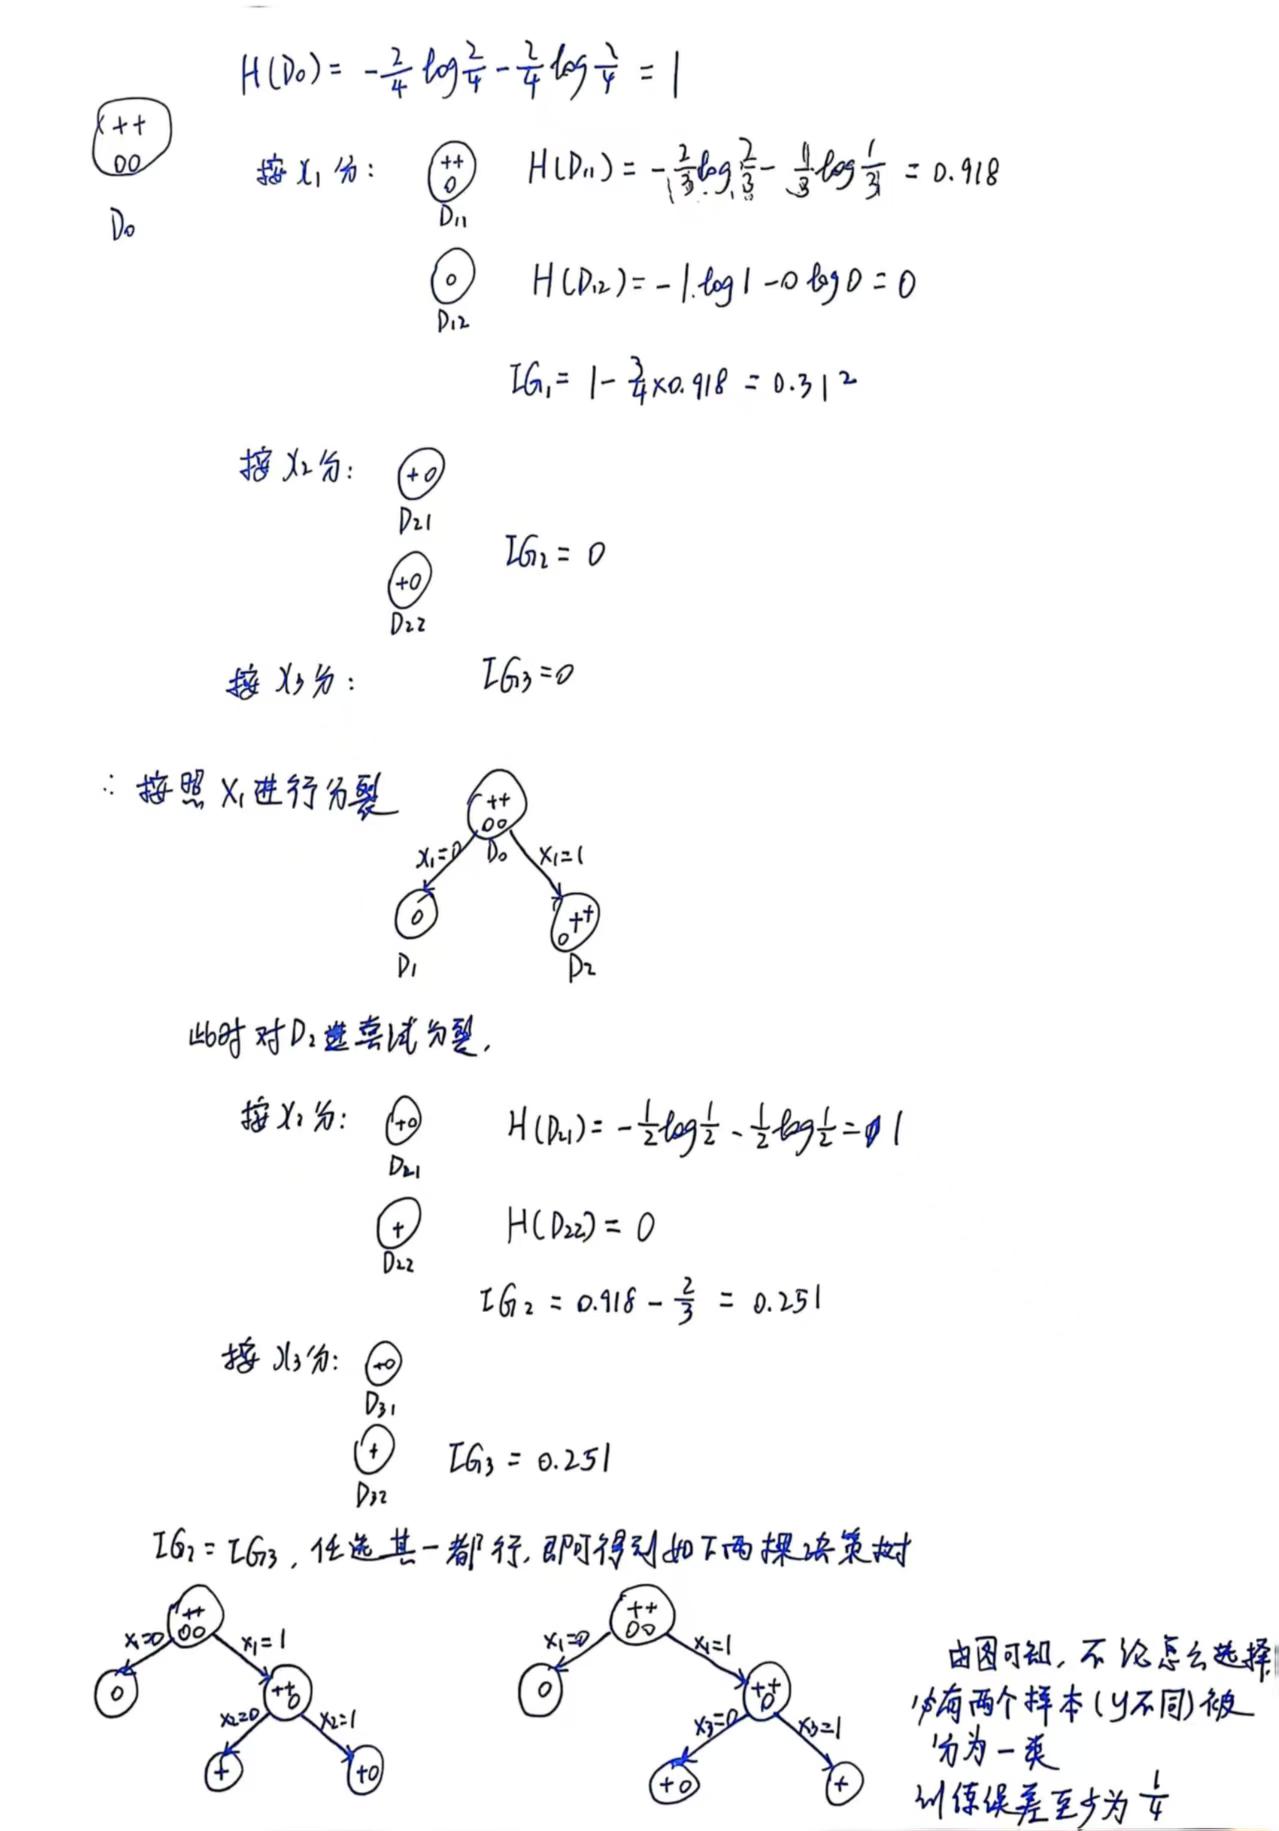 H(D₀) = -2/4 log 2/4 - 2/4 log 2/4 = 1
++
00
D₀
按 x₁ 分:
++
0
D₁₁
H(D₁₁) = -2/3 log 2/3 - 1/3 log 1/3 = 0.918
0
D₁₂
H(D₁₂) = -1·log1 - 0 log0 = 0
IG₁ = 1 - 3/4 × 0.918 = 0.312
按 x₂ 分:
+0
D₂₁
IG₂ = 0
+0
D₂₂
按 x₃ 分:
IG₃ = 0
∴ 按照 X₁ 进行分裂
++
00
D₀
x₁=0
x₁=1
0
D₁
++
0
D₂
此时对D₂进尝试分裂.
按 x₂ 分:
+0
D₂₁
H(D₂₁) = -1/2 log 1/2 - 1/2 log 1/2 = 1
+
D₂₂
H(D₂₂) = 0
IG₂ = 0.918 - 2/3 = 0.251
按 x₃ 分:
+0
D₃₁
+
D₃₂
IG₃ = 0.251
IG₂ = IG₃, 任选其一都行, 即可得到如下两棵决策树
++
00
x₁=0
x₁=1
0
++
0
x₂=0
x₂=1
+
+0
++
00
x₁=0
x₁=1
0
++
0
x₃=0
x₃=1
+0
+
由图可知, 不论怎么选择
必有两个样本(y不同)被
分为一类
训练误差至少为 1/4